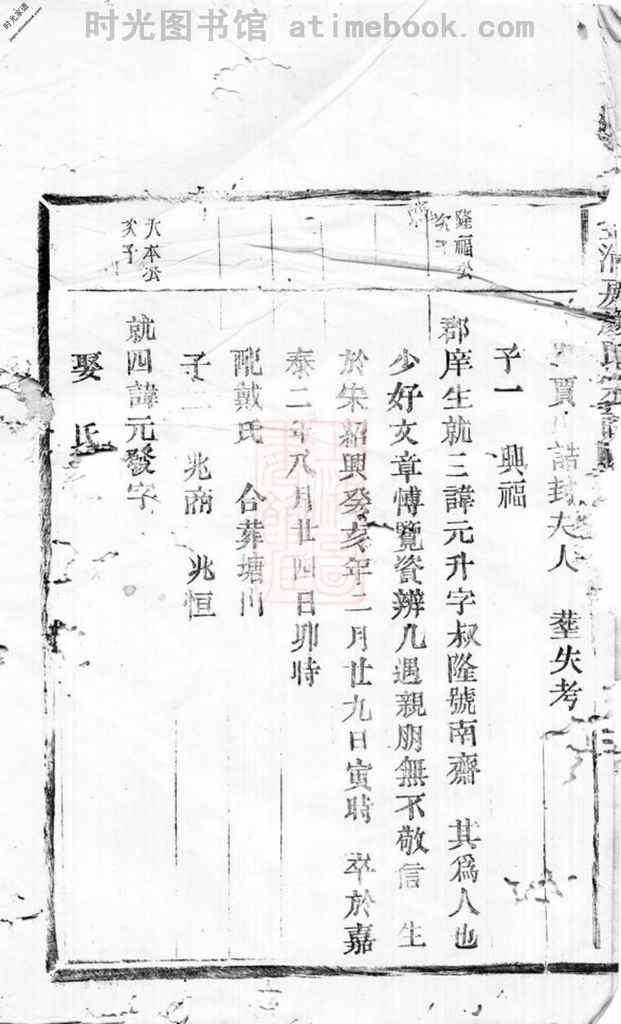 时光图书馆 atimebook.com
时光家谱
氏宗譜
賈 誥封夫人 塟失考
子一 興福
隆福公
次子
郡庠生就三諱元升字叔隆號南齋 其爲人也
少好文章愽覽資辨凡遇親朋無不敬信 生
於宋紹興癸亥年二月廿九日寅時 卒於嘉
泰二年八月廿四日卯時
配戴氏 合葬塘川
子二 兆商 兆恒
大本公
次子
就四諱元發字
娶 氏